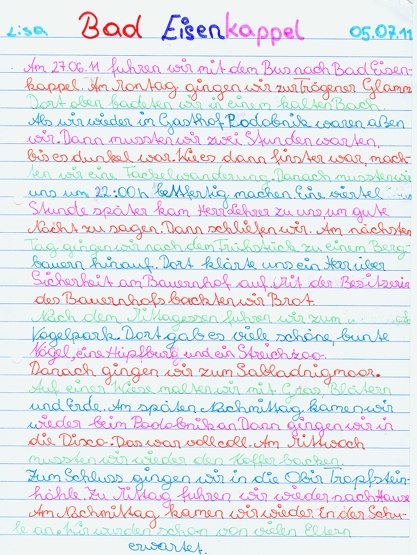 Lisa Bad Eisenkappel 05.07.11
Am 27.06.11 fuhren wir mit dem Bus nach Bad Eisen-
kappel. Am Montag gingen wir zur Trögener Glamm
Dort oben badeten wir in einem kalten Bach.
Als wir wieder im Gasthof Podobnik waren aßen
wir. Dann mussten wir zwei Stunden warten,
bis es dunkel war. Wie es dann finster war, mach-
ten wir eine Fackelwanderung. Danach mussten wir
uns um 22:00h bettfertig machen. Eine viertel
Stunde später kam Herr Lehrer zu uns, um gute
Nacht zu sagen. Dann schliefen wir. Am nächsten
Tag gingen wir nach dem Frühstück zu einem Berg-
bauern hinauf. Dort klärte uns ein Herr über
Sicherheit am Bauernhof auf. Mit der Besitzerin
des Bauernhofs backten wir Brot.
Nach dem Mittagessen fuhren wir zum
Vogelpark. Dort gab es viele schöne, bunte
Vögel, eine Hüpfburg und ein Streichzoo.
Danach gingen wir zum Sabladnigmoor.
Auf einer Wiese malten wir mit Gras, Blättern
und Erde. Am späten Nachmittag kamen wir
wieder beim Podobnik an. Dann gingen wir in
die Disco. Das war voll coll. Am Mittwoch
mussten wir wieder den Koffer packen.
Zum Schluss gingen wir in die Obir Tropfstein-
höhle. Zu Mittag fuhren wir wieder nach Hause
Am Nachmittag kamen wir wieder in der Schu-
le an. Wir wurden schon von vielen Eltern
erwartet.